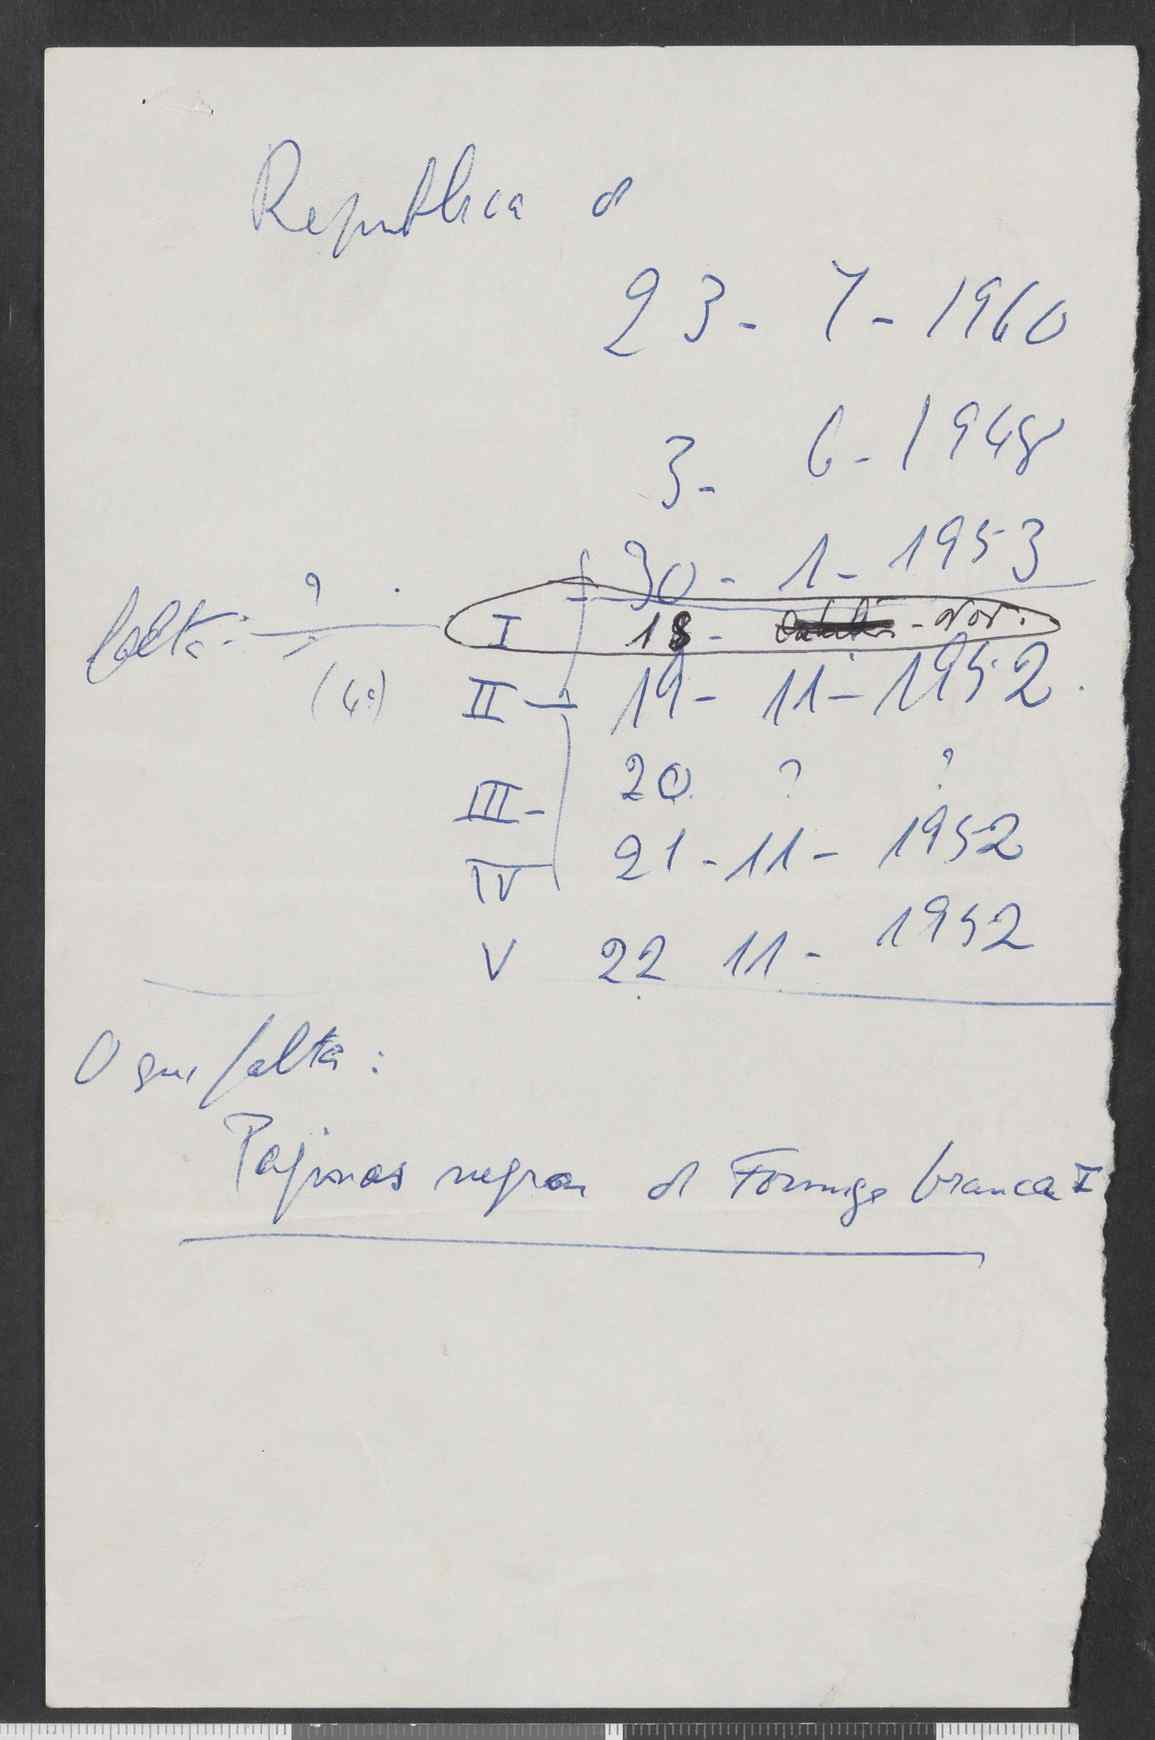 Republica d
23 - 7 - 1960
3 - 6 - 1948
30 - 1 - 1953
falta: ? I 18 - Nov.
(4ª) II - 19 - 11 - 1952.
III - 20 ? ?
IV 21 - 11 - 1952
V 22 11 - 1952
O que falta:
Paginas negras d Formiga branca I